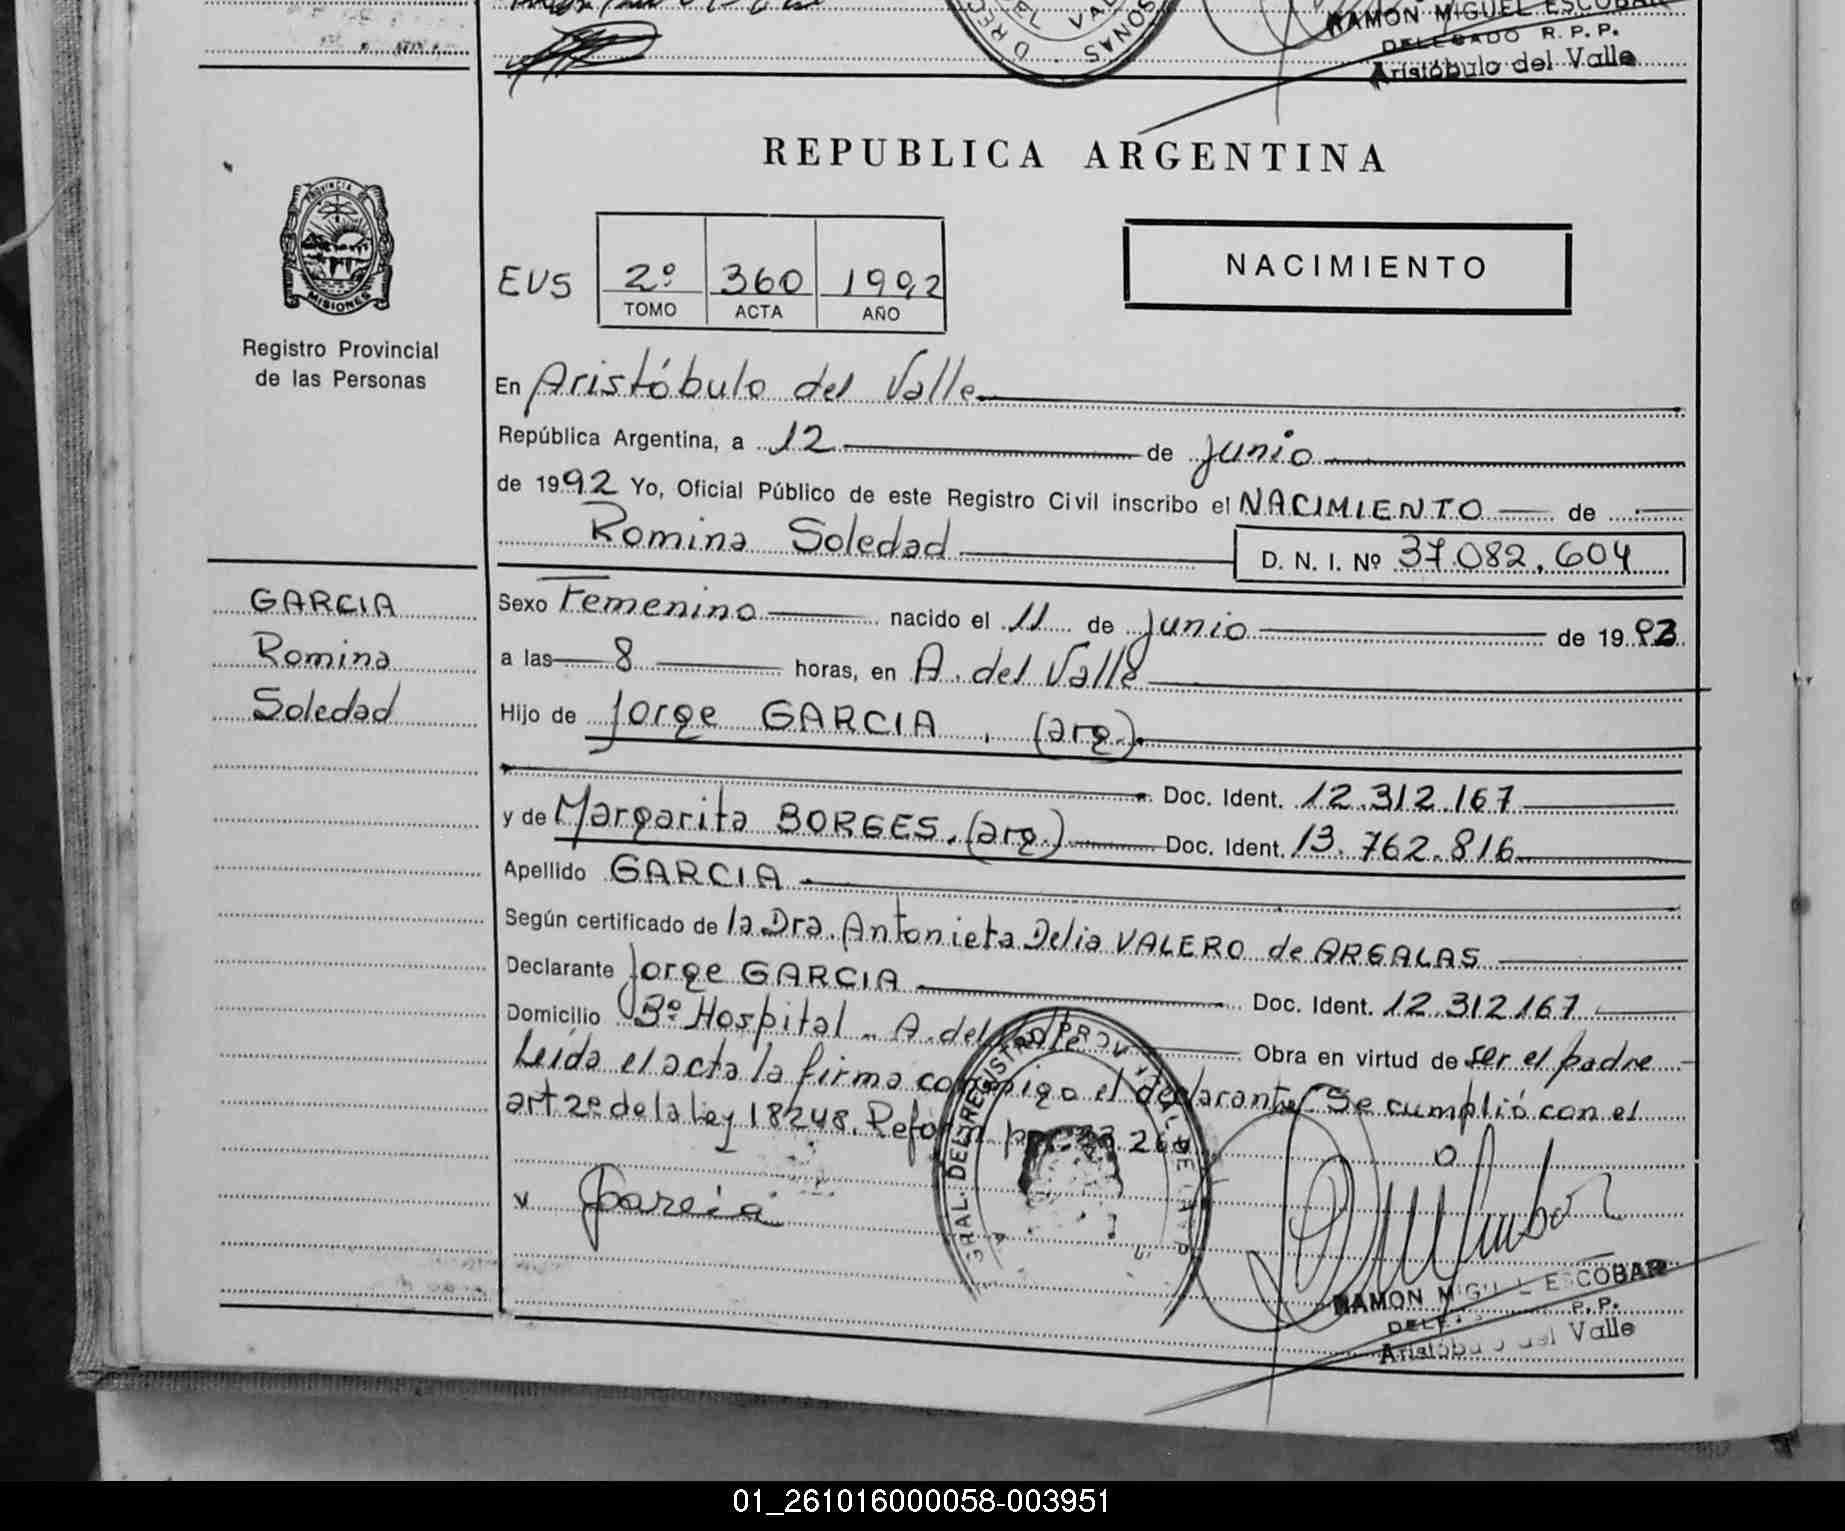 RAMON MIGUEL ESCOBAR
DELEGADO R. P. P.
Aristóbulo del Valle
REPUBLICA ARGENTINA
PROVINCIA DE
MISIONES
Registro Provincial
de las Personas
EVS 2º 360 1992
TOMO ACTA AÑO
NACIMIENTO
En Aristóbulo del Valle
República Argentina, a 12 de Junio
de 1992 Yo, Oficial Público de este Registro Civil inscribo el NACIMIENTO de
Romina Soledad D. N. I. Nº 37.082.604
GARCIA
Romina
Soledad
Sexo Femenino nacido el 11 de Junio de 1992
a las 8 horas, en A. del Valle
Hijo de Jorge GARCIA. (arg.)
Doc. Ident. 12.312.167
y de Margarita BORGES. (arg.) Doc. Ident. 13.762.816
Apellido GARCIA
Según certificado de la Dra. Antonieta Delia VALERO de ARGALAS
Declarante Jorge GARCIA Doc. Ident. 12.312.167
Domicilio Bº Hospital - A. del Valle Obra en virtud de ser el padre
Leída el acta la firma conmigo el declarante. Se cumplió con el
art 2º de la Ley 18248. Reform por 23.264
v Garcia
RAMON MIGUEL ESCOBAR
R. P. P.
Aristóbulo del Valle
01_261016000058-003951